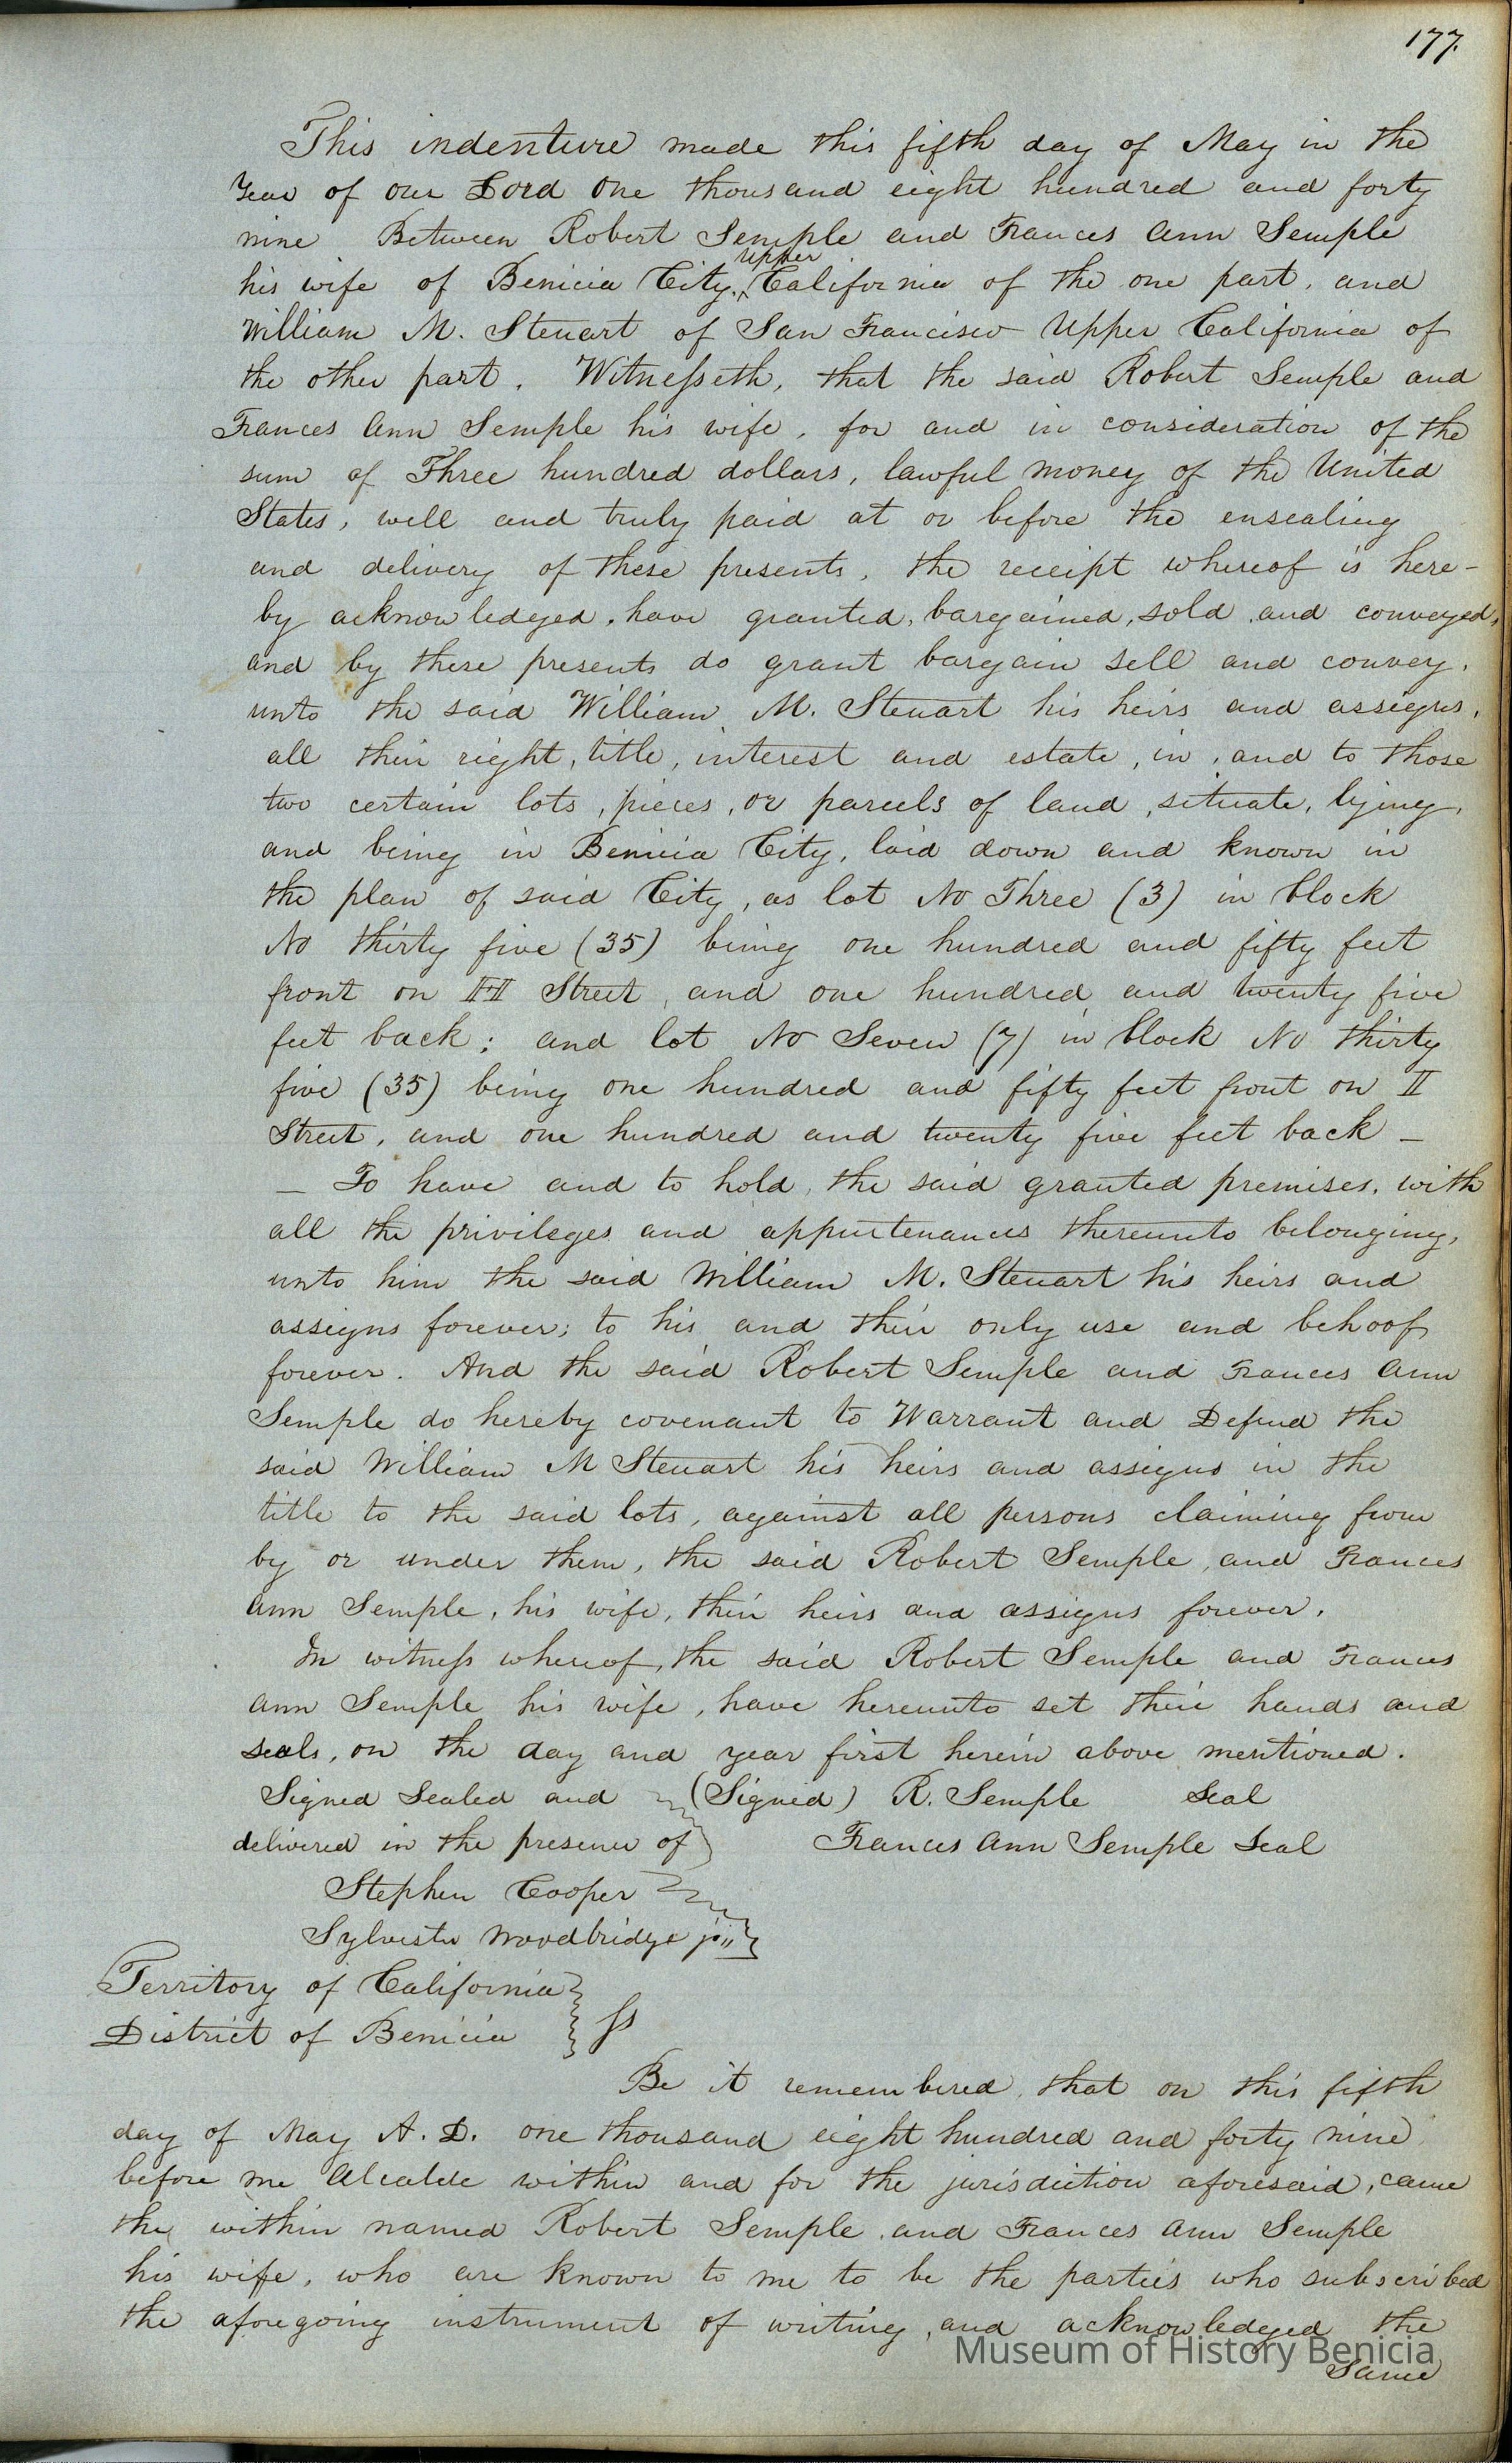 177.
This indenture made this fifth day of May in the
Year of our Lord One thousand eight hundred and forty
nine Between Robert Semple and Frances Ann Semple
his wife of Benicia City, Upper California of the one part, and
William M. Steuart of San Francisco Upper California of
the other part. Witnesseth, that the said Robert Semple and
Frances Ann Semple his wife, for and in consideration of the
sum of Three hundred dollars, lawful money of the United
States, well and truly paid at or before the ensealing
and delivery of these presents, the receipt whereof is here-
by acknowledged, have granted, bargained, sold and conveyed,
and by these presents do grant bargain sell and convey,
unto the said William M. Steuart his heirs and assigns,
all their right, title, interest and estate, in, and to those
two certain lots, pieces, or parcels of land, situate, lying,
and being in Benicia City, laid down and known in
the plan of said City, as lot No Three (3) in block
No thirty five (35) being one hundred and fifty feet
front on Street, and one hundred and twenty five
feet back; and lot No Seven (7) in block No thirty
five (35) being one hundred and fifty feet front on II
Street, and one hundred and twenty five feet back —
— To have and to hold, the said granted premises, with
all the privileges and appurtenances thereunto belonging,
unto him the said William M. Steuart his heirs and
assigns forever; to his and their only use and behoof
forever. And the said Robert Semple and Frances Ann
Semple do hereby covenant to Warrant and Defend the
said William M Steuart his heirs and assigns in the
title to the said lots, against all persons claiming from
by or under them, the said Robert Semple, and Frances
Ann Semple, his wife, their heirs and assigns forever.
In witness whereof, the said Robert Semple and Frances
Ann Semple his wife, have hereunto set their hands and
seals, on the day and year first herein above mentioned.
Signed Sealed and (Signed) R. Semple Seal
delivered in the presence of Frances Ann Semple Seal
Stephen Cooper
Sylvester Woodbridge jr
Territory of California
District of Benicia } ss
Be it remembered, that on this fifth
day of May A. D. one thousand eight hundred and forty nine
before me Alcalde within and for the jurisdiction aforesaid, came
the within named Robert Semple, and Frances Ann Semple
his wife, who are known to me to be the parties who subscribed
the aforegoing instrument of writing, and acknowledged the
Same
Museum of History Benicia